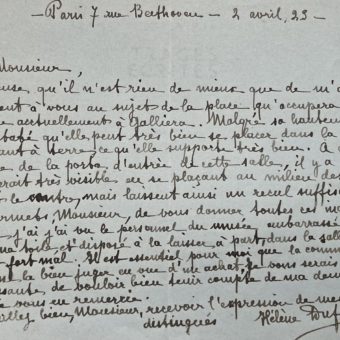 Paris 7 rue Beethoven — 2 avril, 23 —
Monsieur,
qu'il n'est rien de mieux que de m'a
ent à vous au sujet de la place qu'occupera
e actuellement à Galliera. Malgré sa hauteur
qu'elle peut très bien se placer dans la
à terre, ce qu'elle supporte très bien. A
de la porte d'entrée de cette salle, il y a
erait très visible en se plaçant au milieu des
le mais laissant ainsi un recul suffis
ermets, Monsieur, de vous donner toutes ces
j'ai vu le personnel du musée embarrassé
ma toile et disposé à la laisser à part, dans la salle
fort mal. Il est essentiel pour moi que la comm
la bien juger en vue d'un achat. Je vous serais
sante de vouloir bien tenir compte de ma dem
vous en remercie.
illez bien, Monsieur, recevoir l'expression de me
distingués
Hélène Duf